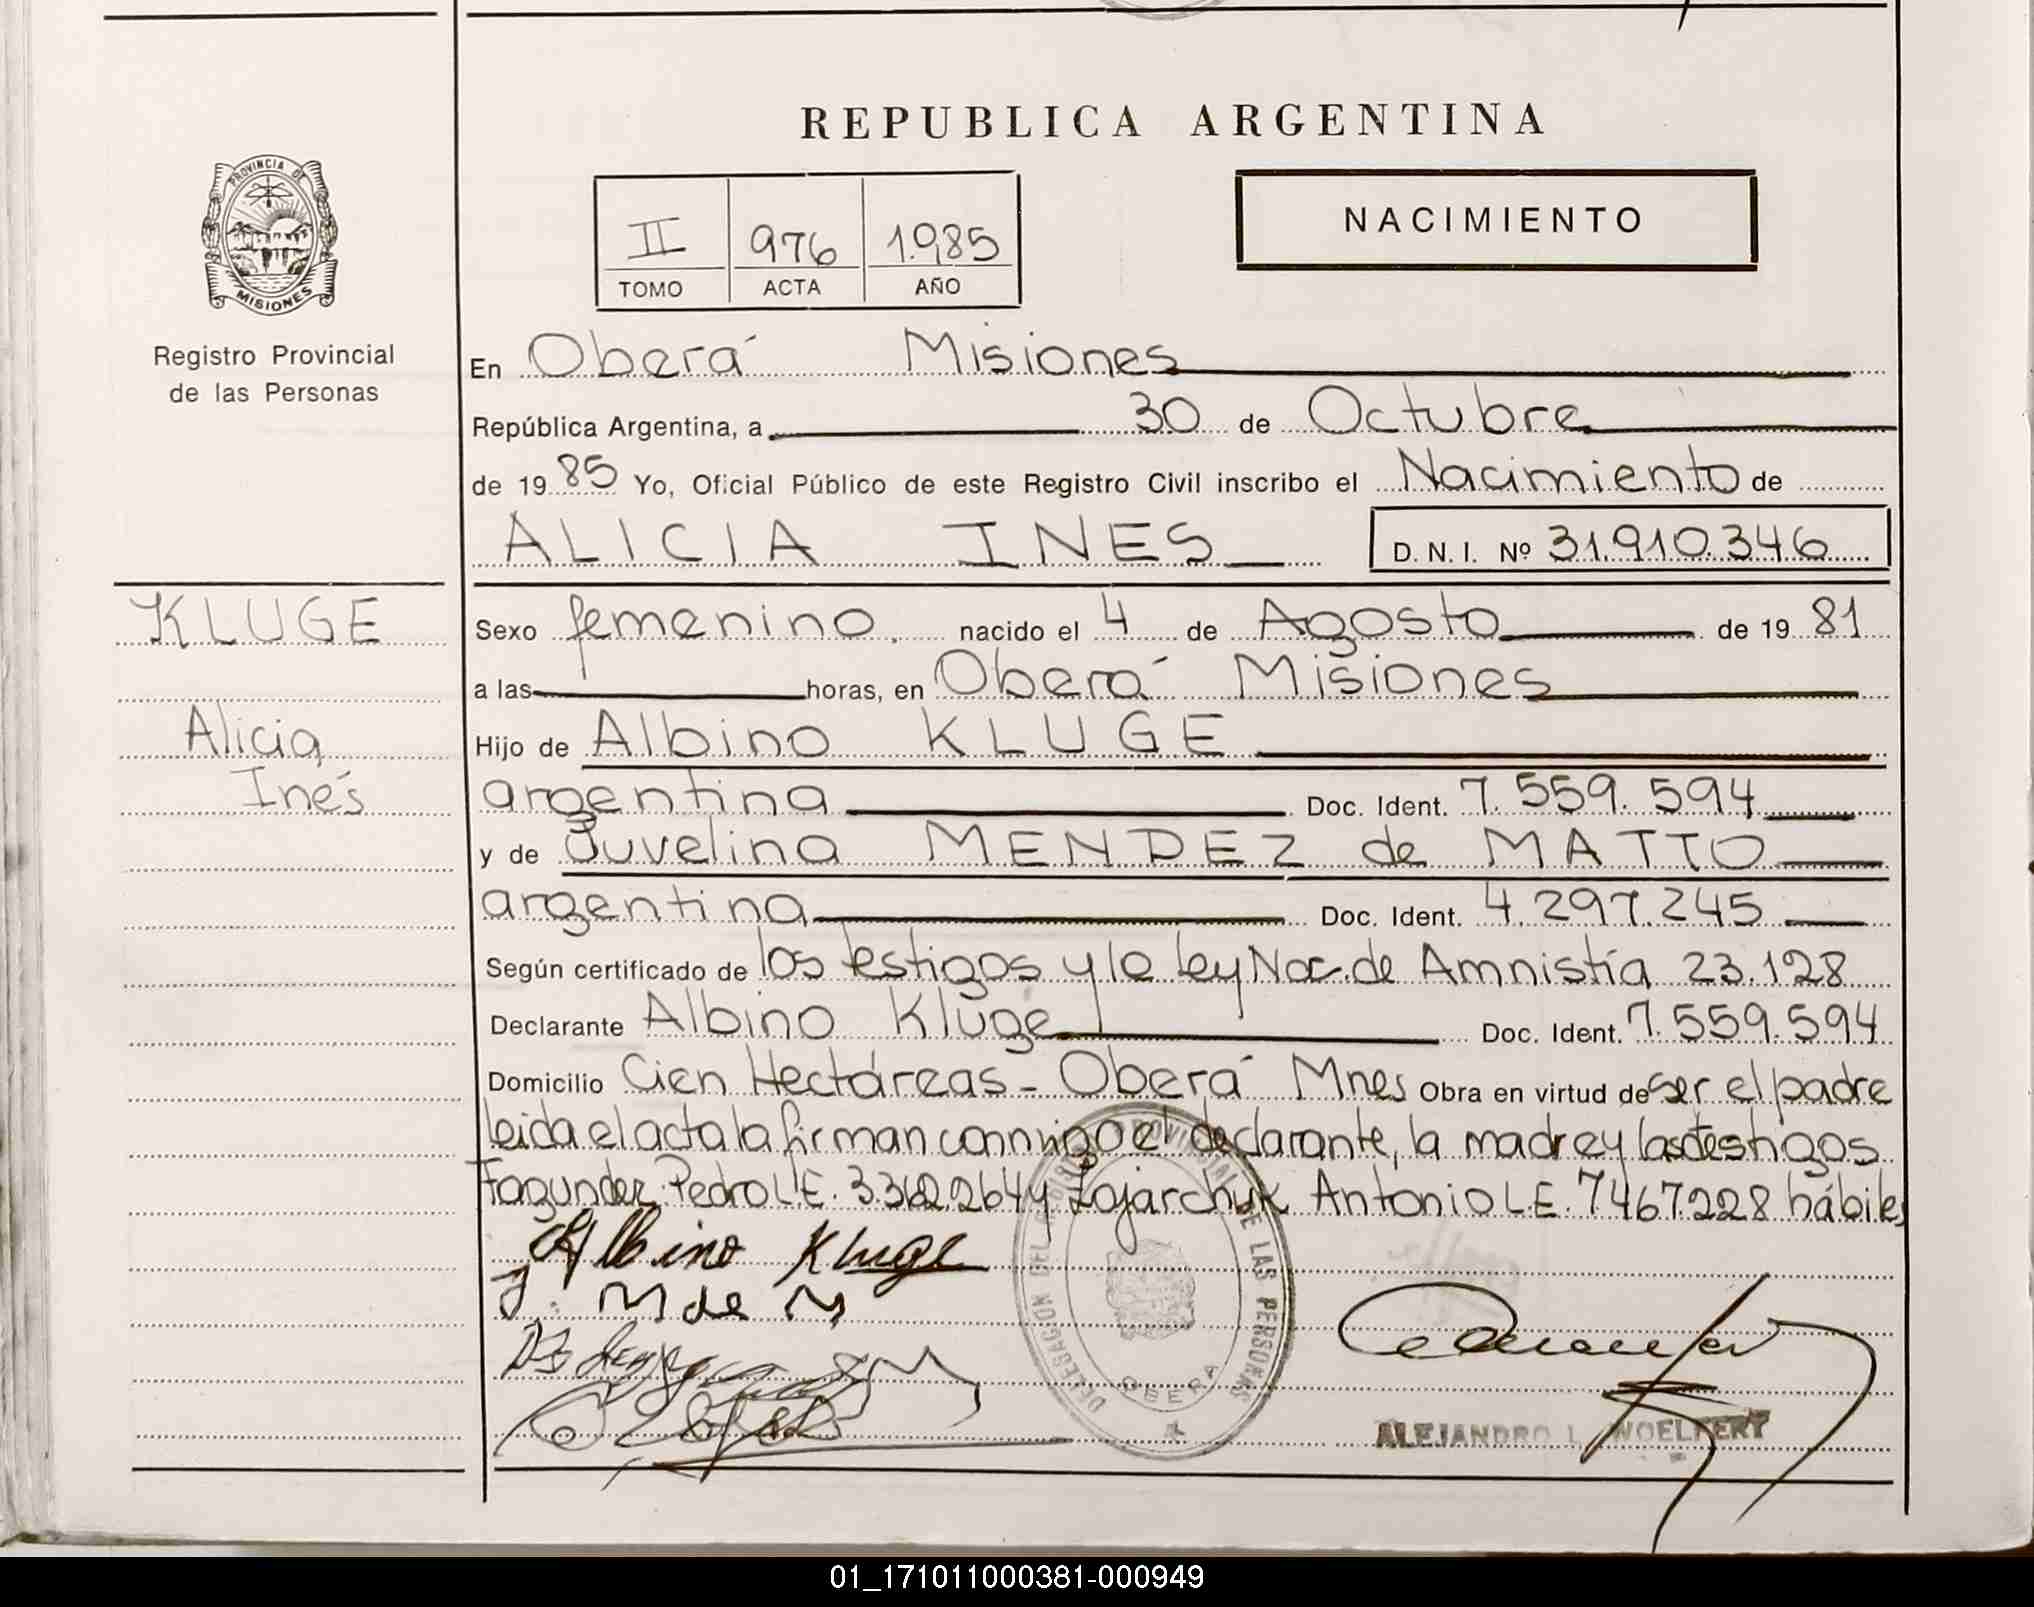 REPUBLICA ARGENTINA
PROVINCIA DE
MISIONES
Registro Provincial
de las Personas
II 976 1.985
TOMO ACTA AÑO
NACIMIENTO
En Oberá Misiones
República Argentina, a 30 de Octubre
de 19 85 Yo, Oficial Público de este Registro Civil inscribo el Nacimiento de
ALICIA INES D. N. I. Nº 31.910.346
KLUGE
Alicia
Inés
Sexo femenino. nacido el 4 de Agosto de 19 81
a las horas, en Oberá Misiones
Hijo de Albino KLUGE
argentina Doc. Ident. 7.559.594
y de Juvelina MENDEZ de MATTO
argentina Doc. Ident. 4.297.245
Según certificado de los testigos y la ley Nac. de Amnistía 23.128
Declarante Albino Kluge Doc. Ident. 7.559.594
Domicilio Cien Hectáreas - Oberá Mnes Obra en virtud de ser el padre
leida el acta la firman conmigo el declarante, la madre y los testigos
Fagundez Pedro L.E. 3362264 y Zajarchuk Antonio L.E. 7467228 hábiles
Albino Kluge
J. M de M
DELEGACION DEL REGISTRO PROVINCIAL DE LAS PERSONAS
OBERA
ALEJANDRO L. WOELFERT
01_171011000381-000949